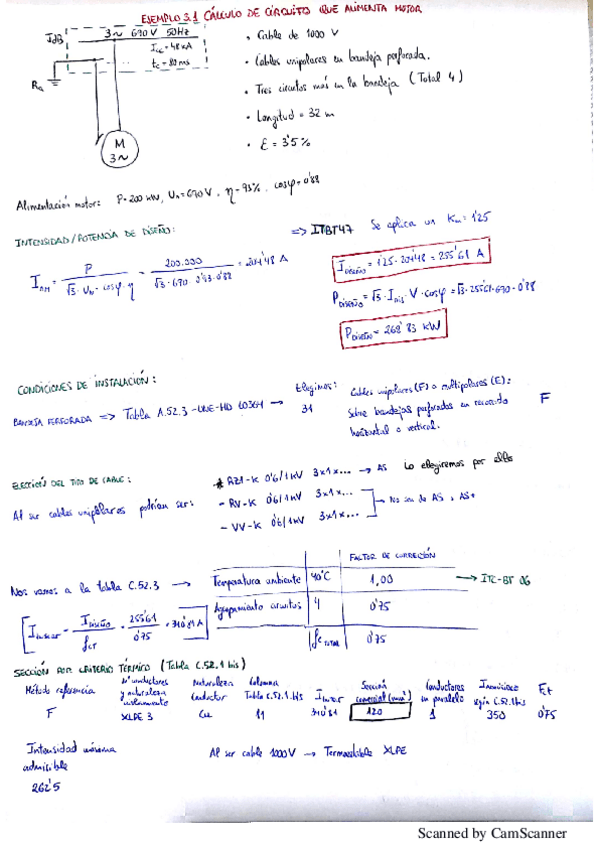 EJEMPLO 3.1 CÁLCULO DE CIRCUITO QUE ALIMENTA MOTOR
3~ 690 V 50Hz
Icc = 48 kA
tc = 80 ms
RA
M
3~
• Cable de 1000 V
• Cables unipolares en bandeja perforada.
• Tres circuitos más en la bandeja (Total 4)
• Longitud = 32 m
• E = 3'5 %
Alimentación motor: P = 200 kW, Un = 690 V, η = 93%, cosφ = 0'88
INTENSIDAD/POTENCIA DE DISEÑO:
=> ITBT47 Se aplica un Km = 1'25
InM = P / √3 · Un · cosφ · η = 200.000 / √3 · 690 · 0'93 · 0'88 = 204'48 A
IDISEÑO = 1'25 · 204'48 = 255'61 A
PDISEÑO = √3 · IDIS · V · cosφ = √3 · 255'61 · 690 · 0'88
PDISEÑO = 268'83 KW
CONDICIONES DE INSTALACIÓN:
BANDEJA PERFORADA => Tabla A.52.3 - UNE-HD 60364 →
Elegimos:
31
Cables unipolares (F) o multipolares (E):
Sobre bandejas perforadas en recorrido
horizontal o vertical.
F
ELECCIÓN DEL TIPO DE CABLE:
Al ser cables unipolares podrían ser:
* RZ1-K 0'6/1 kV 3x1x... → AS Lo elegiremos por ello
- RV-K 0'6/1 kV 3x1x...
- VV-K 0'6/1 kV 3x1x...
→ No son de AS, AS+
Nos vamos a la tabla C.52.3 →
FACTOR DE CORRECCIÓN
Temperatura ambiente 40°C 1,00 → ITC-BT 06
Agrupamiento circuitos 4 0'75
fc TOTAL 0'75
= IDISEÑO / fCT = 255'61 / 0'75 = 340'81 A
SECCIÓN POR CRITERIO TÉRMICO (Tabla C.52.1 bis)
Método referencia
F
Nº conductores y naturaleza aislamiento
XLPE 3
Naturaleza Conductor
Cu
Columna Tabla C.52.1.bis
11
340'81
Sección comercial (mm²)
120
Conductores en paralelo
1
350
0'75
Intensidad máxima
admisible
262'5
Al ser cable 1000 V → Termoestable XLPE
Scanned by CamScanner